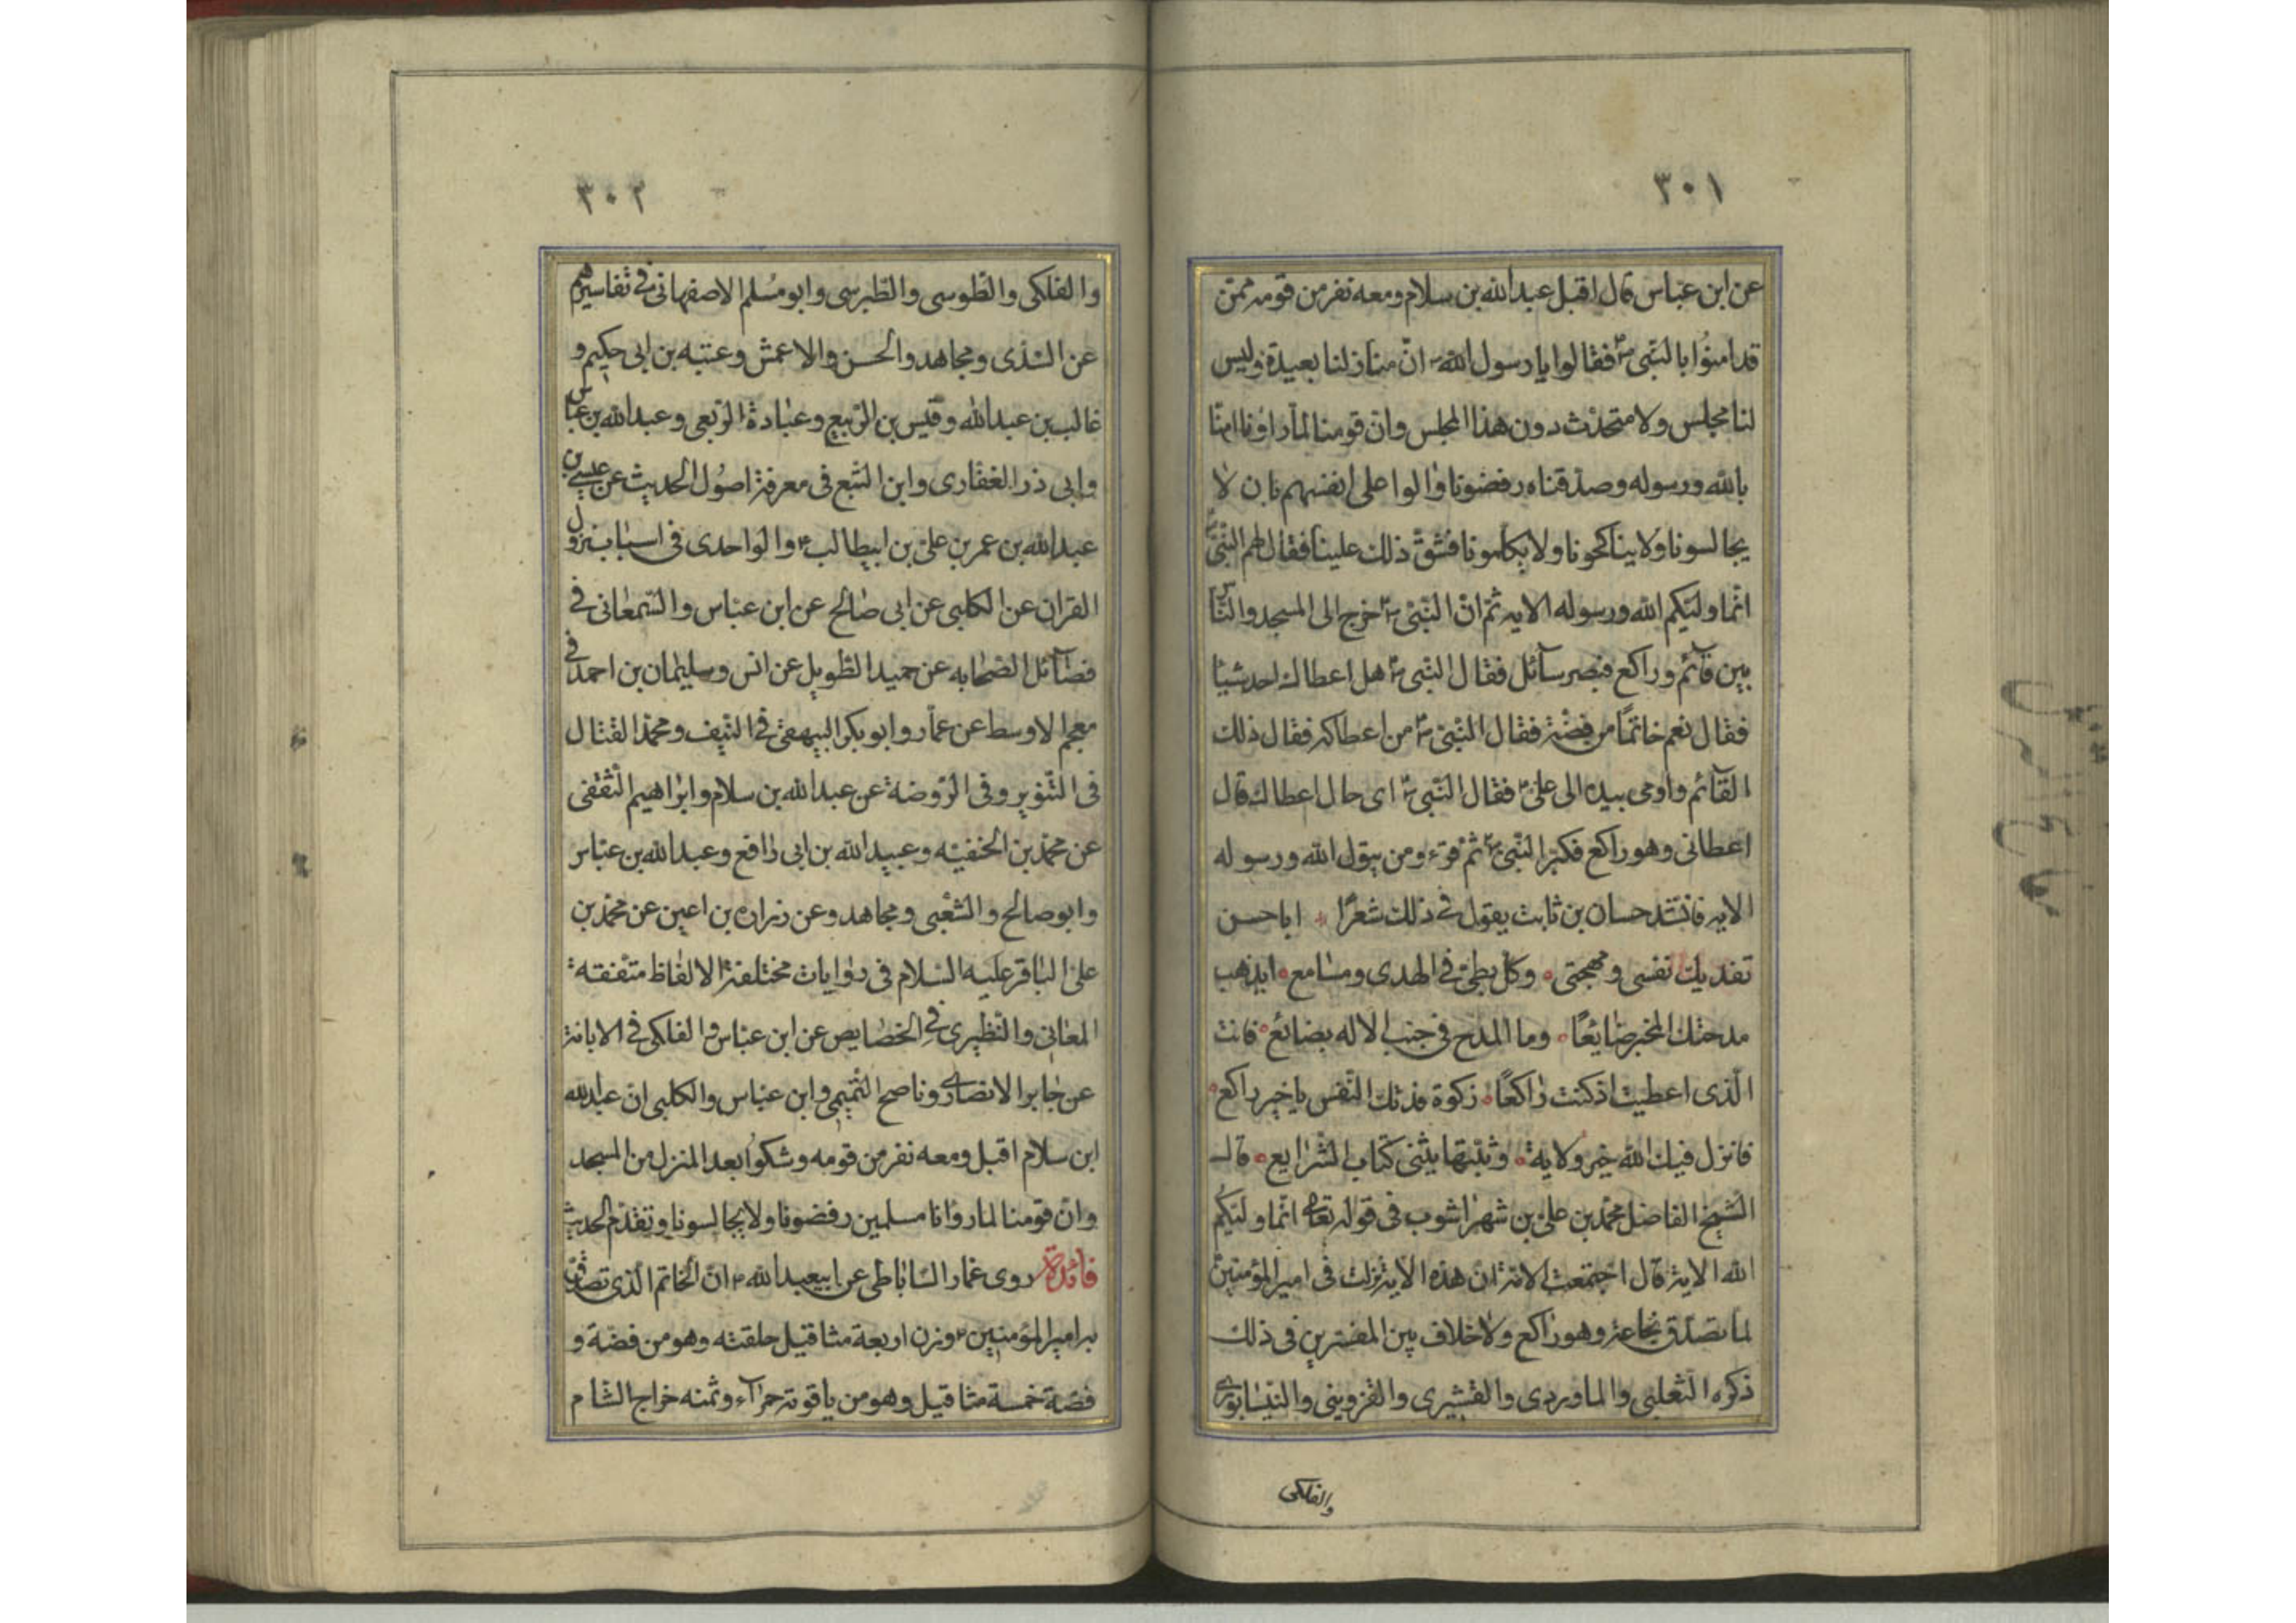 ٣٠١
عن ابن عباس قال اقبل عبدالله بن سلام ومعه نفر من قومه ممن
قد امنوا بالنبی ص فقالوا یا رسول الله ان منازلنا بعیدة ولیس
لنا مجلس ولا متحدث دون هذا المجلس وان قومنا لما راونا امنا
بالله ورسوله وصدقناه رفضونا والوا علی انفسهم بان لا
یجالسونا ولا یناکحونا ولا یکلمونا فشق ذلك علینا فقال لهم النبی
انما ولیکم الله ورسوله الایه ثم ان النبی ص خرج الی المسجد والناس
بین قآئم وراکع فبصر سآئل فقال النبی ص هل اعطاك احد شیئا
فقال نعم خاتما من فضة فقال النبی ص من اعطاکه فقال ذلك
القآئم واومی بیده الی علی فقال النبی ص ای حال اعطاك قال
اعطانی وهو راکع فکبر النبی ص ثم قرء ومن یتول الله ورسوله
الایه فانشد حسان بن ثابت یقول فی ذلك شعرًا اباحسن
تفدیك نفسی ومهجتی وکل بطی فی الهدی ومسامع ایذهب
مدحتك المخبر ضایعًا وما المدح فی جنب الاله بضائع فانت
الذی اعطیت اذ کنت راکعًا زکوة فدتك النفس یا خیر راکع
فانزل فیك الله خیر ولایة وثبتها یثنی کتاب الشرایع قال
الشیخ الفاضل محمد بن علی بن شهراشوب فی قوله تعالی انما ولیکم
الله الایة قال اجتمعت الامة ان هذه الایة نزلت فی امیرالمؤمنین
لما تصدق بخاتمه وهو راکع ولا خلاف بین المفسرین فی ذلك
ذکره الثعلبی والماوردی والقشیری والقزوینی والنیسابوری
والفلکی
٣٠٢
والفلکی والطوسی والطبرسی وابومسلم الاصفهانی فی تفاسیرهم
عن السدی ومجاهد والحسن والاعمش وعتبه بن ابی حکیم و
غالب بن عبدالله وقیس بن الربیع وعبادة الربعی وعبدالله بن عباس
وابی ذر الغفاری وابن البیع فی معرفة اصول الحدیث عن عیسی بن
عبدالله بن عمر بن علی بن ابیطالب والواحدی فی اسباب نزول
القران عن الکلبی عن ابی صالح عن ابن عباس والسمعانی فی
فضآئل الصحابه عن حمید الطویل عن انس وسلیمان بن احمد فی
معجم الاوسط عن عمار وابوبکر البیهقی فی النیف ومحمد القتال
فی التنویر وفی الروضة عن عبدالله بن سلام وابراهیم الثقفی
عن محمد بن الحنفیته وعبیدالله بن ابی رافع وعبدالله بن عباس
وابوصالح والشعبی ومجاهد وعن زراره بن اعین عن محمد بن
علی الباقر علیه السلام فی روایات مختلفة الالفاظ متفقه
المعانی والنطیری فی الخصایص عن ابن عباس والفلکی فی الابانة
عن جابر الانصاری وناصح التمیمی وابن عباس والکلبی ان عبدالله
ابن سلام اقبل ومعه نفر من قومه وشکوا بعد المنزل من المسجد
وان قومنا لما راوانا مسلمین رفضونا ولا یجالسونا وتقدم الحدیث
فائدة روی عمار الساباطی عن ابیعبدالله ان الخاتم الذی تصدق
به امیرالمؤمنین وزن اربعة مثاقیل حلقته وهو من فضة و
فصه خمسة مثاقیل وهو من یاقوتة حمرآء وثمنه خراج الشام